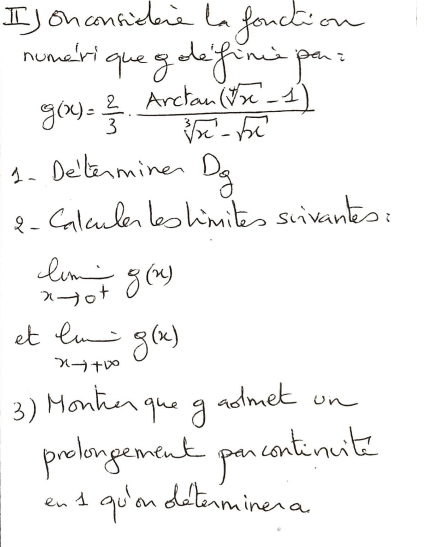 II) On considère la fonction
numérique g définie par :
g(x) = 2/3 · Arctan(∜x - 1) / (∛x - √x)
1 - Déterminer Dg
2 - Calculer les limites suivantes :
lim g(x)
x→0⁺
et lim g(x)
x→+∞
3) Montrer que g admet un
prolongement par continuité
en 1 qu'on déterminera